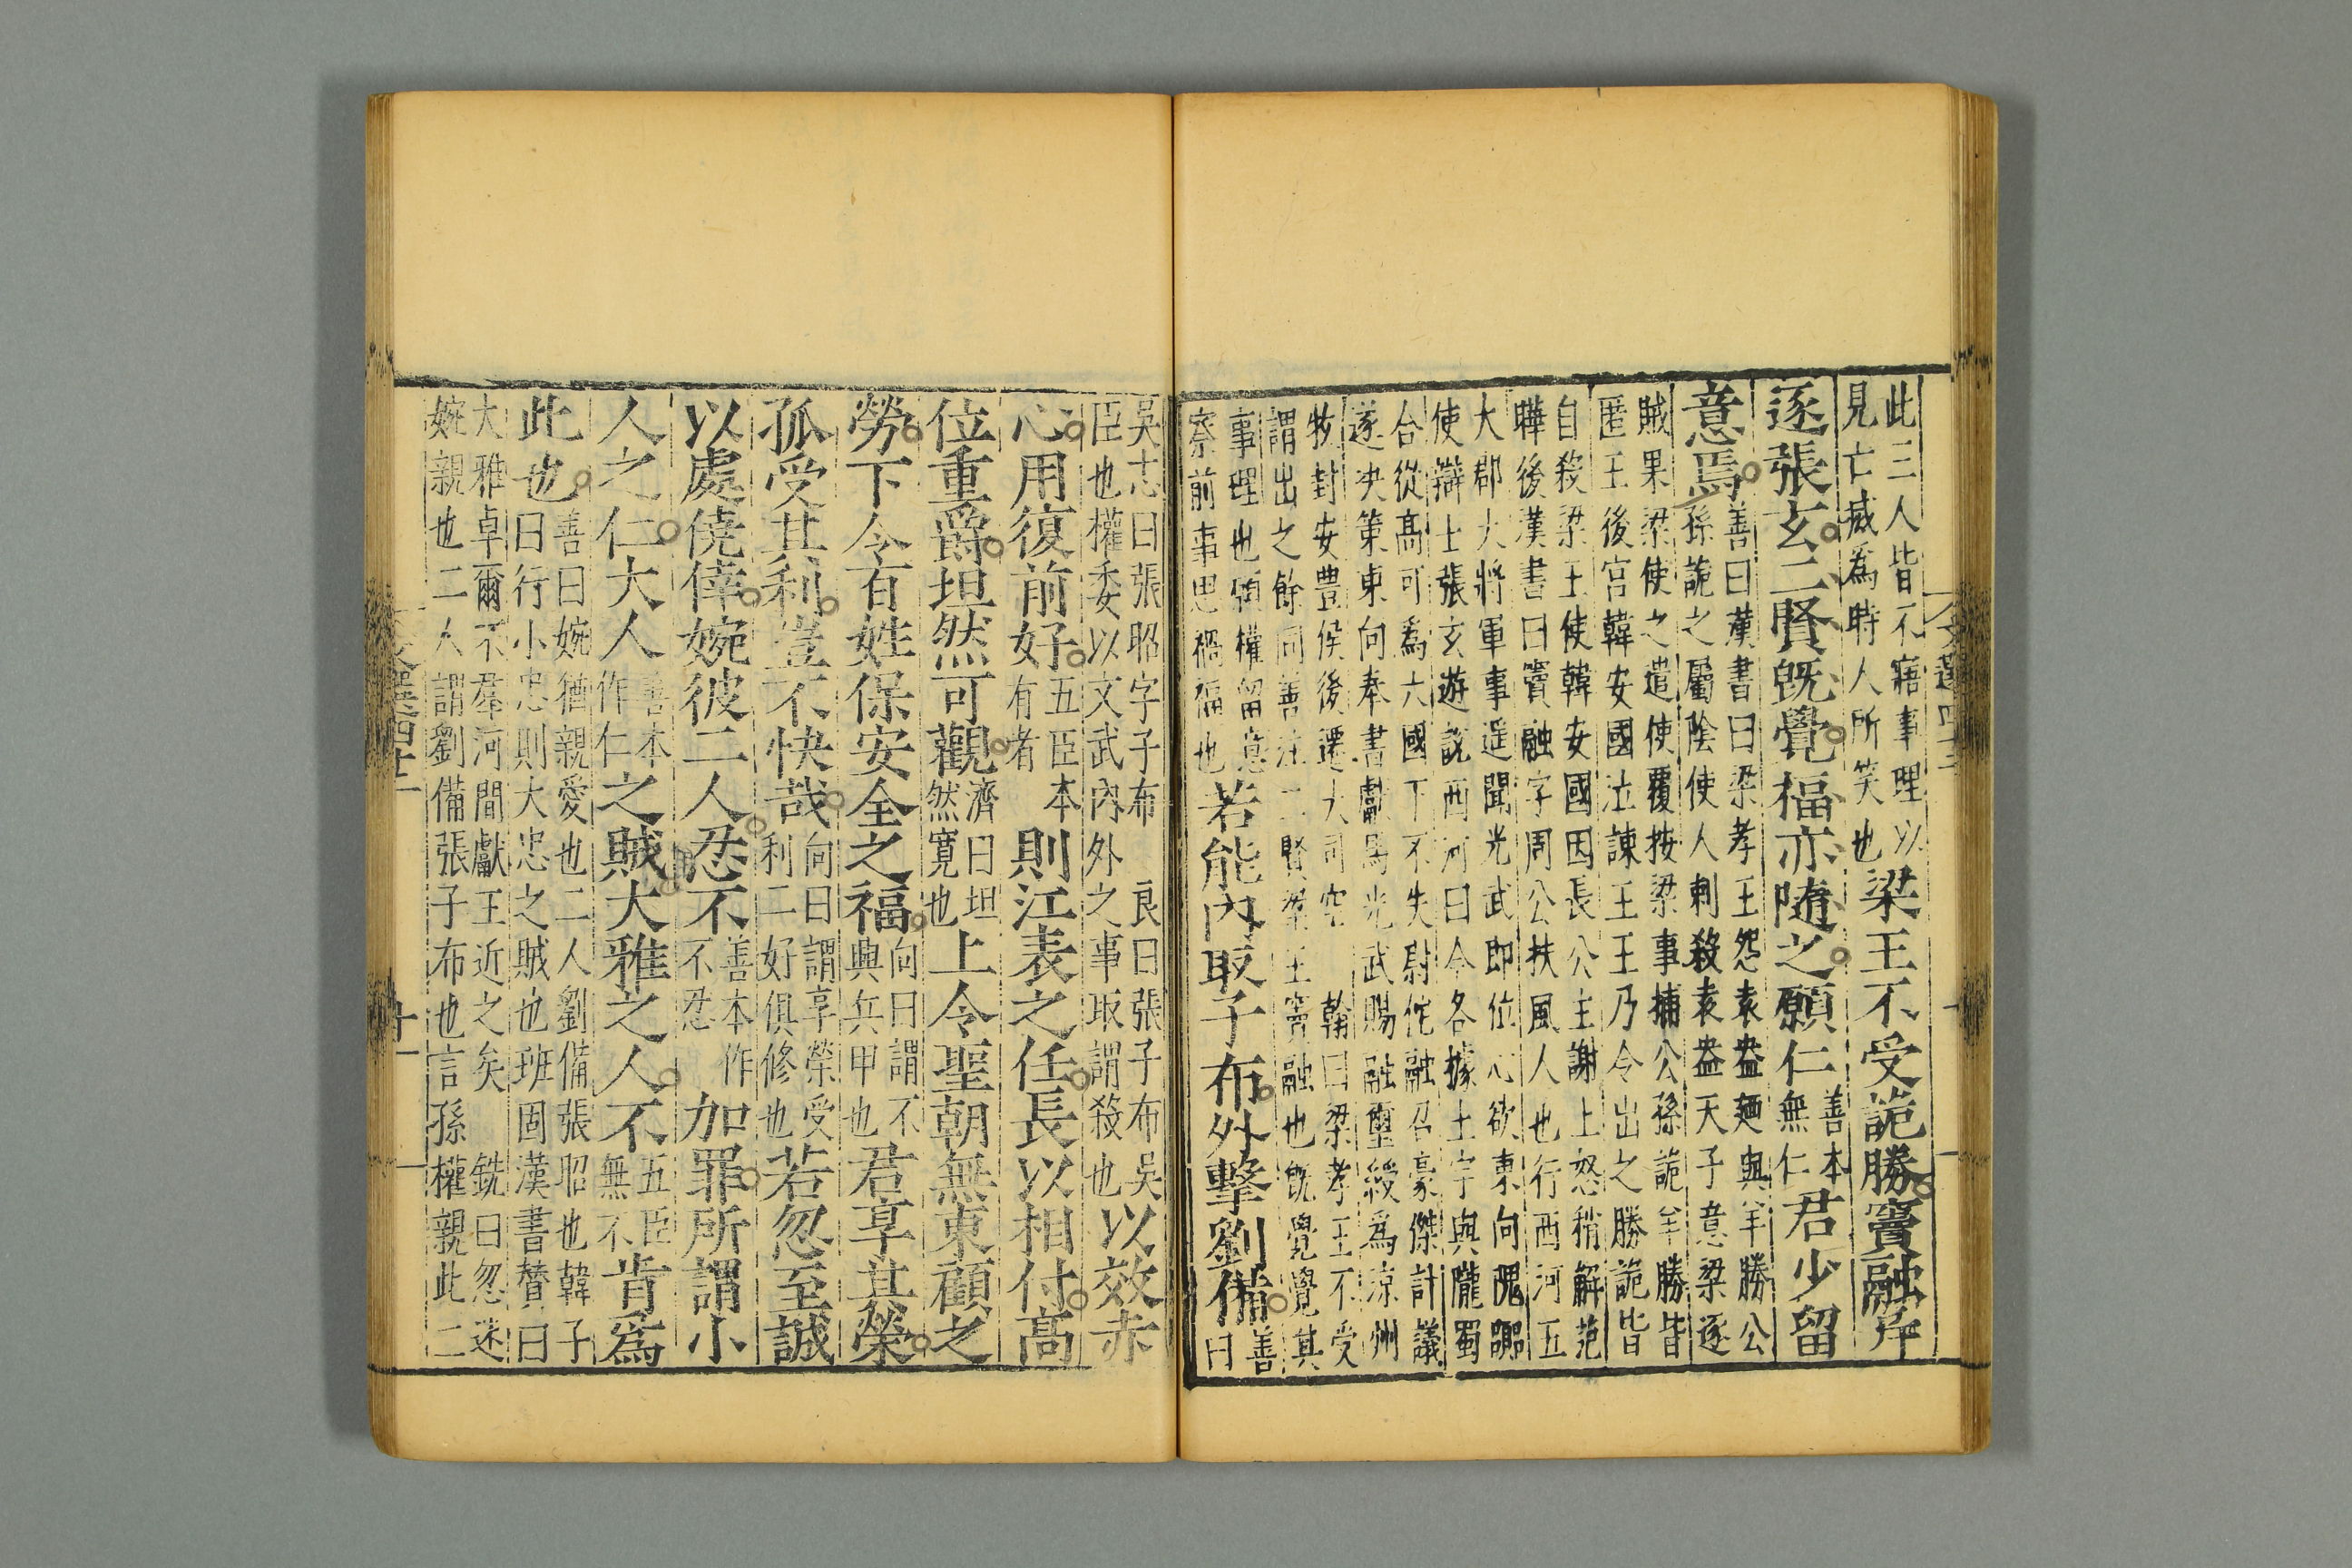 此三人皆不寤事理以
見亡滅為時人所笑也
梁王不受詭勝竇融斥
逐張玄二賢旣覺福亦隨之願仁
善本
無仁
君少留
意焉
善曰漢書曰梁孝王怨袁盎廼與羊勝公
孫詭之屬陰使人刺殺袁盎天子意梁逐
賊果梁使之遣使覆按梁事捕公孫詭羊勝皆
匿王後宮韓安國泣諫王王乃令出之勝詭皆
自殺梁王使韓安國因長公主謝上怒稍解范
曄後漢書曰竇融字周公扶風人也行西河五
大郡大將軍事遥聞光武即位心欲東向隗囂
使辯士張玄遊說西河曰今各據土宇與隴蜀
合從高可為六國下不失尉佗融召豪傑計議
遂决策東向奉書獻馬光武賜融璽綬為涼州
牧封安豊侯後遷大司空
翰曰梁孝王不受
謂出之餘同善注二賢梁王竇融也旣覺覺其
事理也
權留意
察前事思禍福也
若能內取子布外擊劉備
善
曰
吳志曰張昭字子布
良曰張子布吳
臣也權委以文武內外之事取謂殺也
以效赤
心用復前好
五臣本
有者
則江表之任長以相付高
位重爵坦然可觀
濟曰坦
然寛也
上令聖朝無東顧之
勞下令百姓保安全之福
向曰謂不
興兵甲也
君享其榮
孤受其利豈不快哉
向曰謂享榮受
利二好俱修也
若忽至誠
以處僥倖婉彼二人忍不
善本作
不忍
加罪所謂小
人之仁大人
善本
作仁
之賊大雅之人不
五臣
無不
肯為
此也
善曰婉猶親愛也二人劉備張昭也韓子
曰行小忠則大忠之賊也班固漢書贊曰
大雅卓爾不羣河間獻王近之矣
銑曰忽迷
婉親也二人謂劉備張子布也言孫權親此二